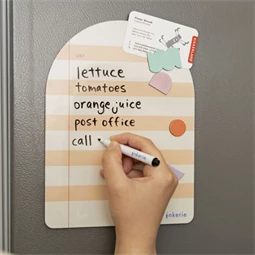 lettuce
tomatoes
orange juice
post office
call